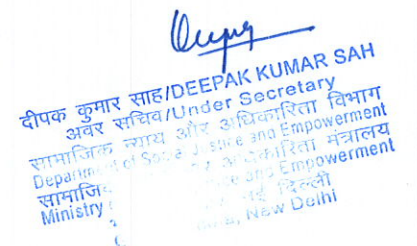 दीपक कुमार साह/DEEPAK KUMAR SAH
अवर सचिव/Under Secretary
सामाजिक न्याय और अधिकारिता विभाग
Department of Social Justice and Empowerment
सामाजिक अधिकारिता मंत्रालय
Ministry and Empowerment
नई दिल्ली
New Delhi